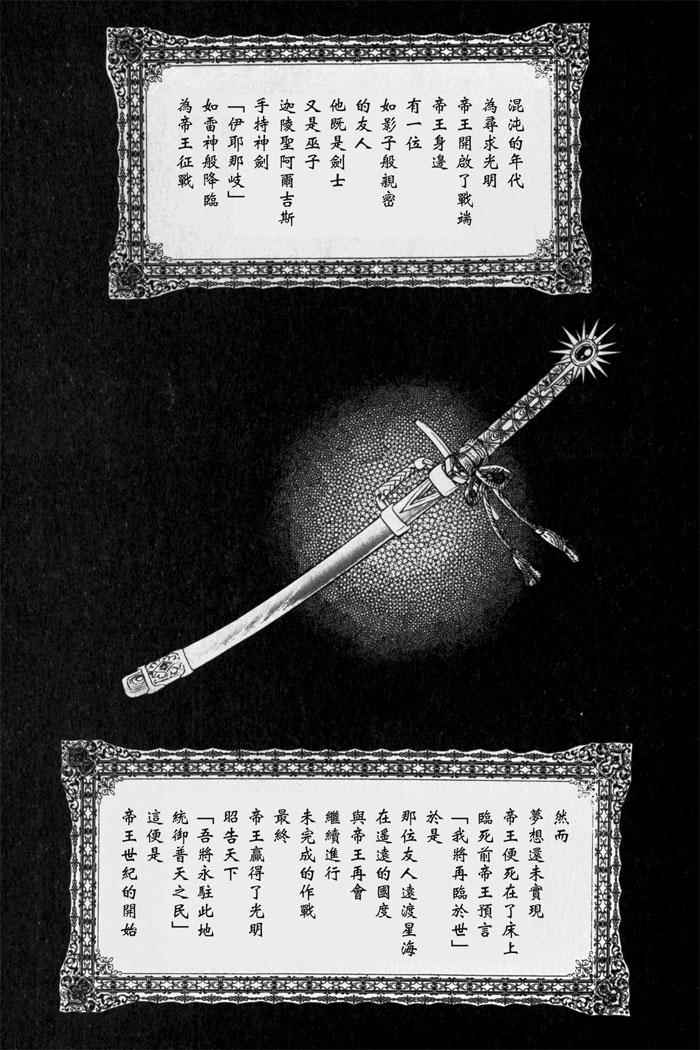 混沌的年代
為尋求光明
帝王開啟了戰端
帝王身邊
有一位
如影子般親密
的友人
他既是劍士
又是巫子
迦陵聖阿爾吉斯
手持神劍
「伊耶那岐」
如雷神般降臨
為帝王征戰
然而
夢想還未實現
帝王便死在了床上
臨死前帝王預言
「我將再臨於世」
於是
那位友人遠渡星海
在遥遠的國度
與帝王再會
繼續進行
未完成的作戰
最終
帝王贏得了光明
昭告天下
「吾將永駐此地
統御普天之民」
這便是
帝王世紀的開始